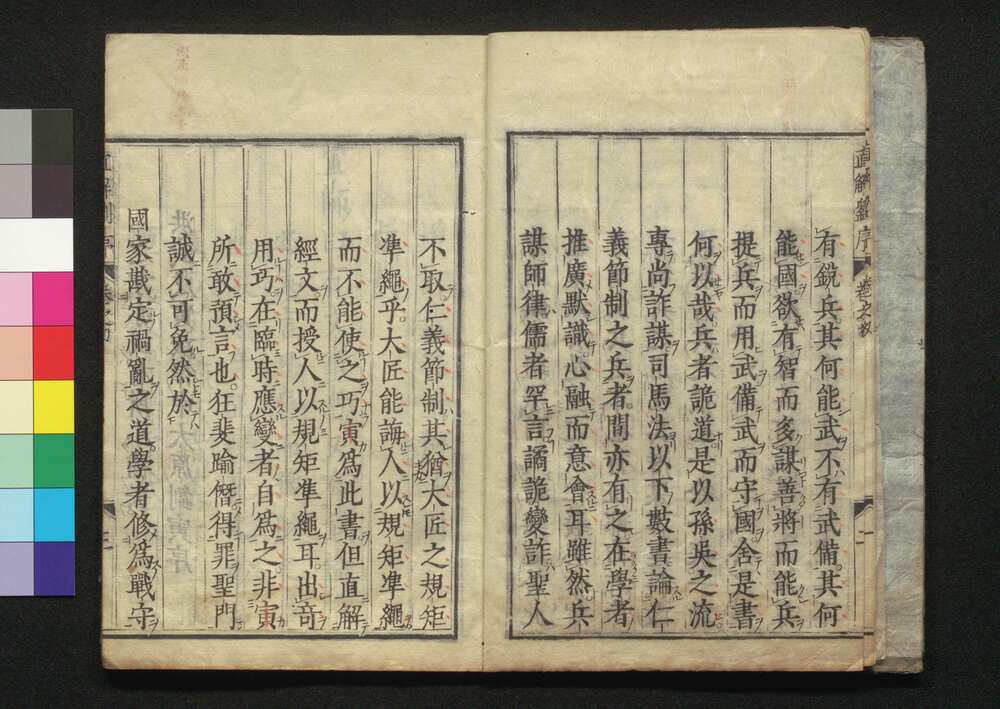 有銳兵其何能武不有武備其何
能國欲有智而多謀善將而能兵
提兵而用武備武而守國舍是書
何以哉兵者詭道是以孫吳之流
專尚詐謀司馬法以下數書論仁
義節制之兵者間亦有之在學者
推廣默識心融而意會耳雖然兵
謀師律儒者罕言譎詭變詐聖人
不取仁義節制其猶大匠之規矩
準繩乎大匠能誨人以規矩準繩
而不能使之巧寅爲此書但直解
經文而授人以規矩準繩耳出奇
用巧在臨時應變者自爲之非寅
所敢預言也。狂斐踰僭得罪聖門
誠不可免然於
國家戡定禍亂之道。學者修爲戰守